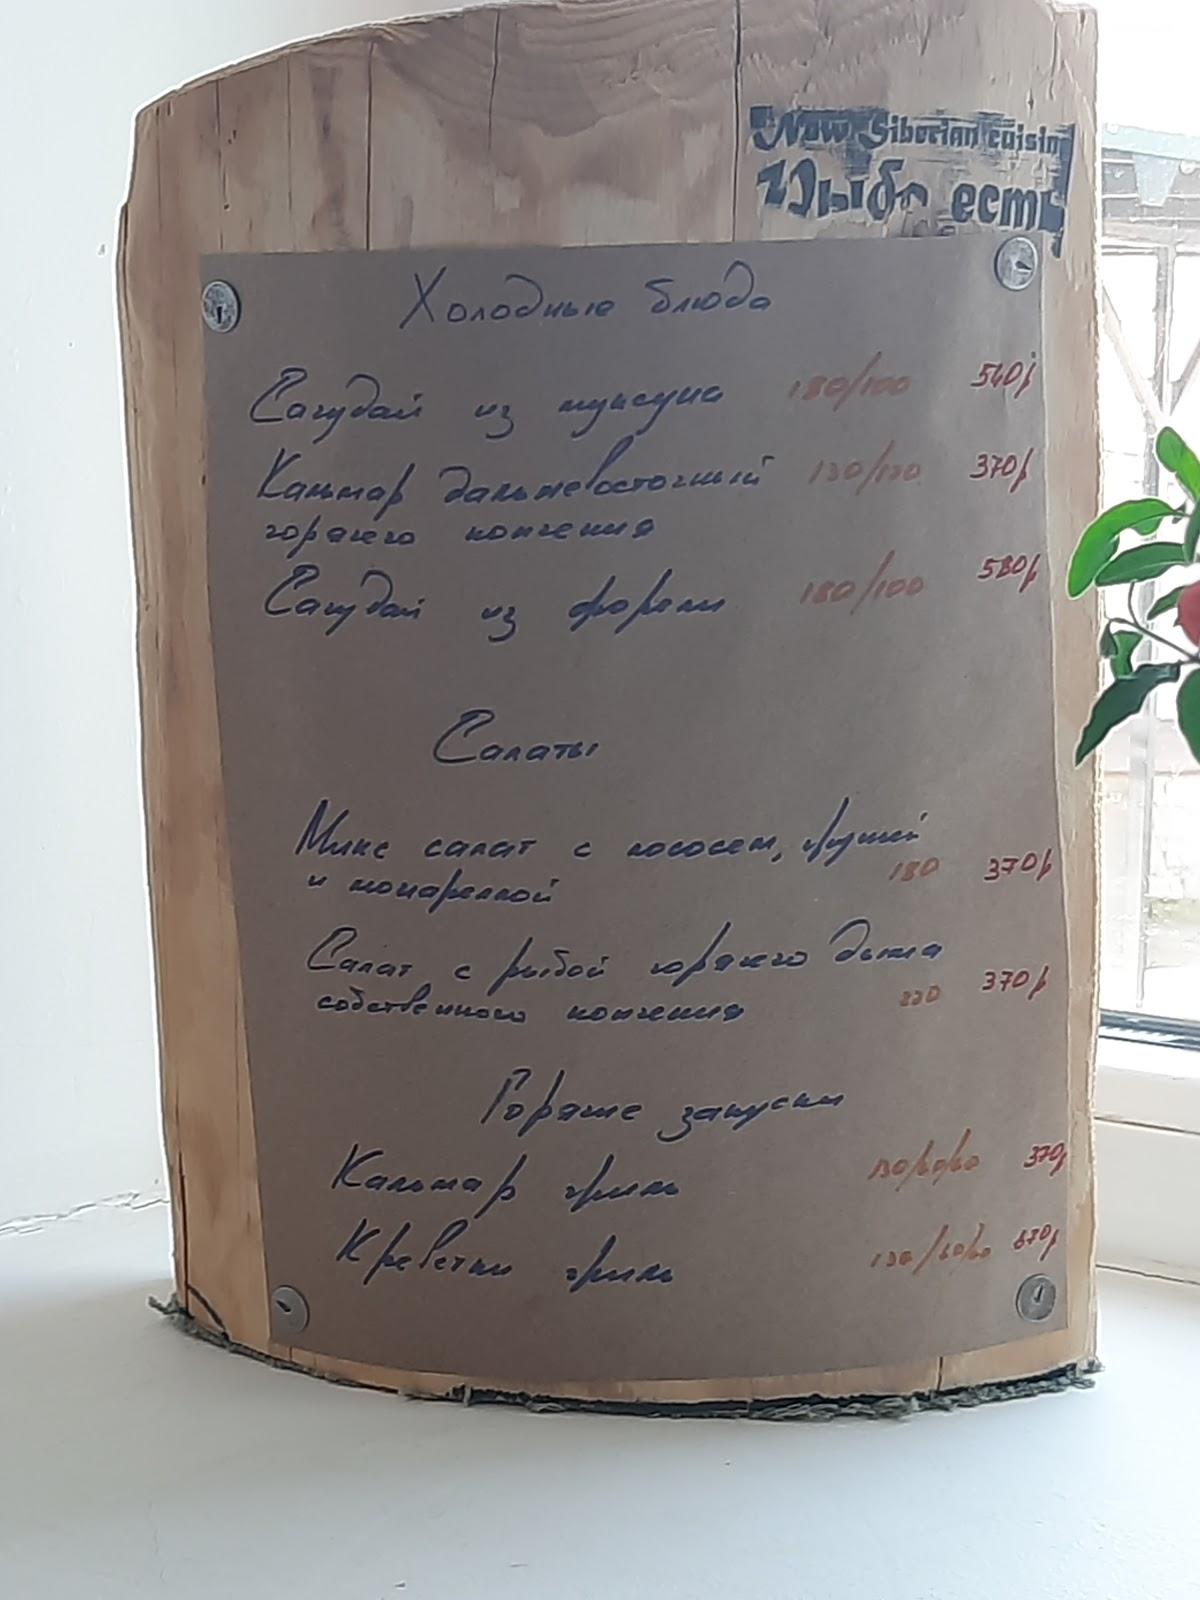 New Siberian cuisine
Рыба есть
Холодные блюда
Сагудай из муксуна 180/100 540р
Кальмар дальневосточный 130/120 370р
горячего копчения
Сагудай из форели 180/100 580р
Салаты
Микс салат с лососем, грушей
и моцареллой 180 370р
Салат с рыбой горячего дыма
собственного копчения 220 370р
Горячие закуски
Кальмар гриль 370р
Креветки гриль 670р